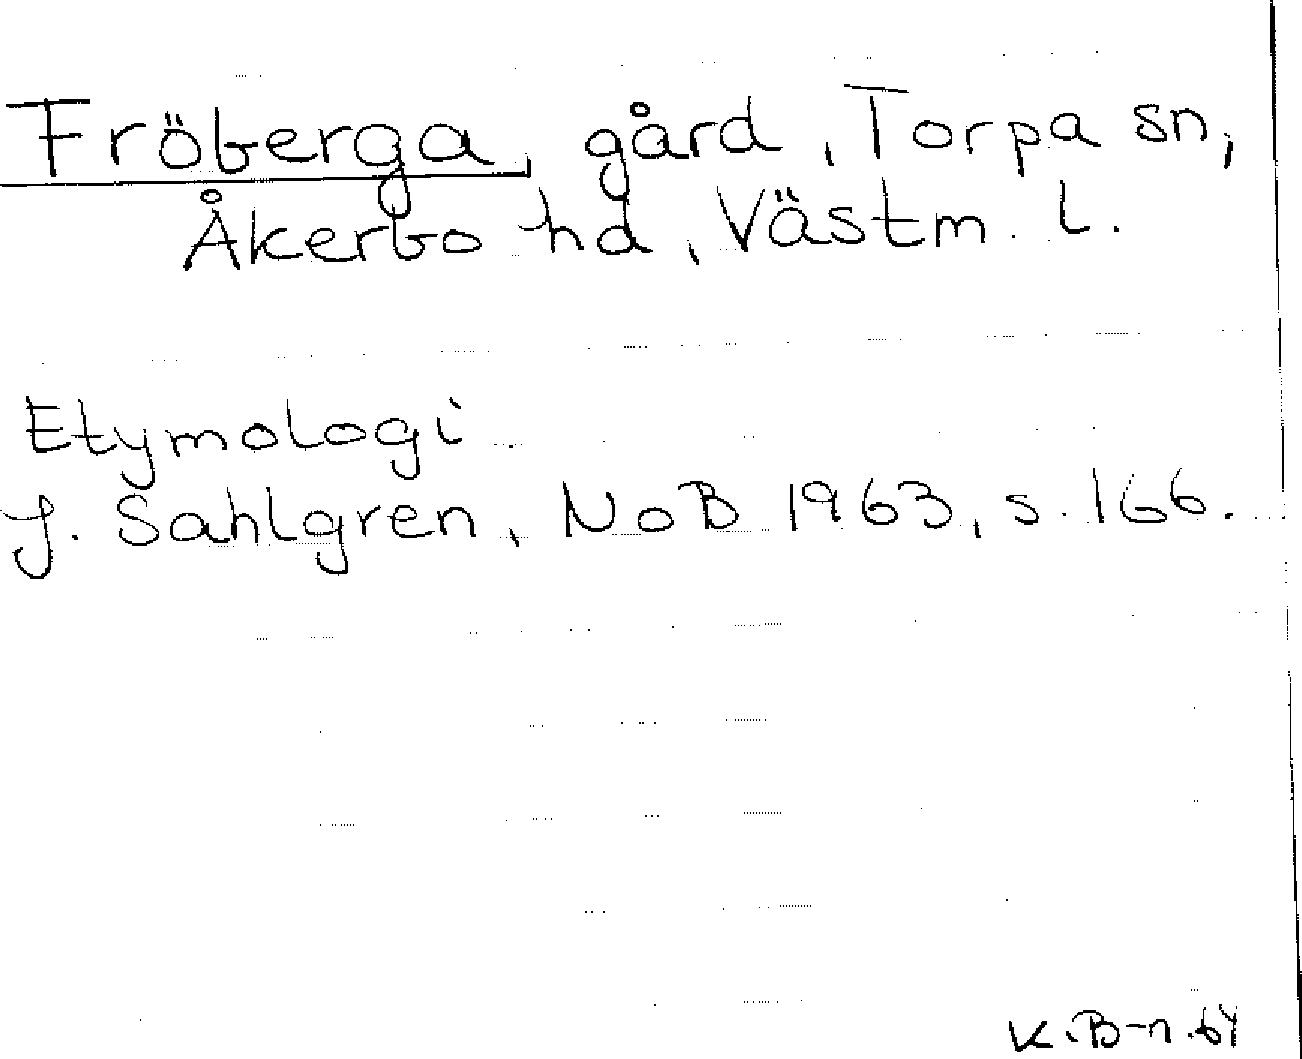 Fröberga, gård, Torpa sn,
Åkerbo hd, Västm. l.
Etymologi
J. Sahlgren, NoB 1963, s. 166.
K.B-n.64